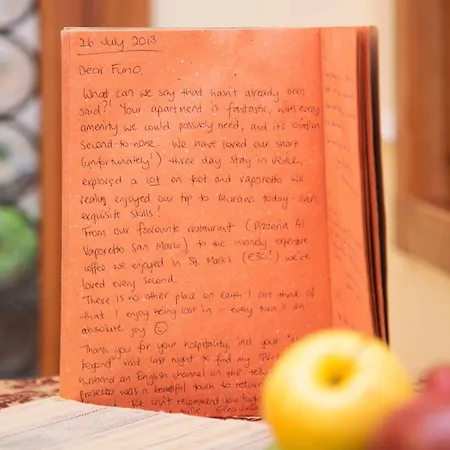 26 July 2013
Dear Fulvio,
What can we say that hasn't already been
said?! Your apartment is fantastic, with every
amenity we could possibly need, and it's location
second-to none. We have loved our short
(unfortunately!) three day stay in Venice,
explored a lot on foot and vaporetto. We
really enjoyed our trip to Murano today - such
exquisite skills!
From our favourite restaurant (Pizzeria Al
Vaporetto San Marco) to the insanely expensive
coffee we enjoyed in St. Mark's (€36!) we've
loved every second.
There is no other place on earth I can think of
that I enjoy being lost in - every turn is an
absolute joy
Thank you for your hospitality, and your
beyond" visit last night to find my
husband an English channel on the
prosecco was a beautiful touch to return
We can't recommend you